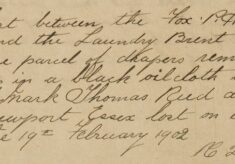 st between the Fox P.H.
nd the Laundry Brent
e parcel of drapers rem
s in a black oilcloth
Mark Thomas Reed a
ewport Essex lost on
re 19th February 1902